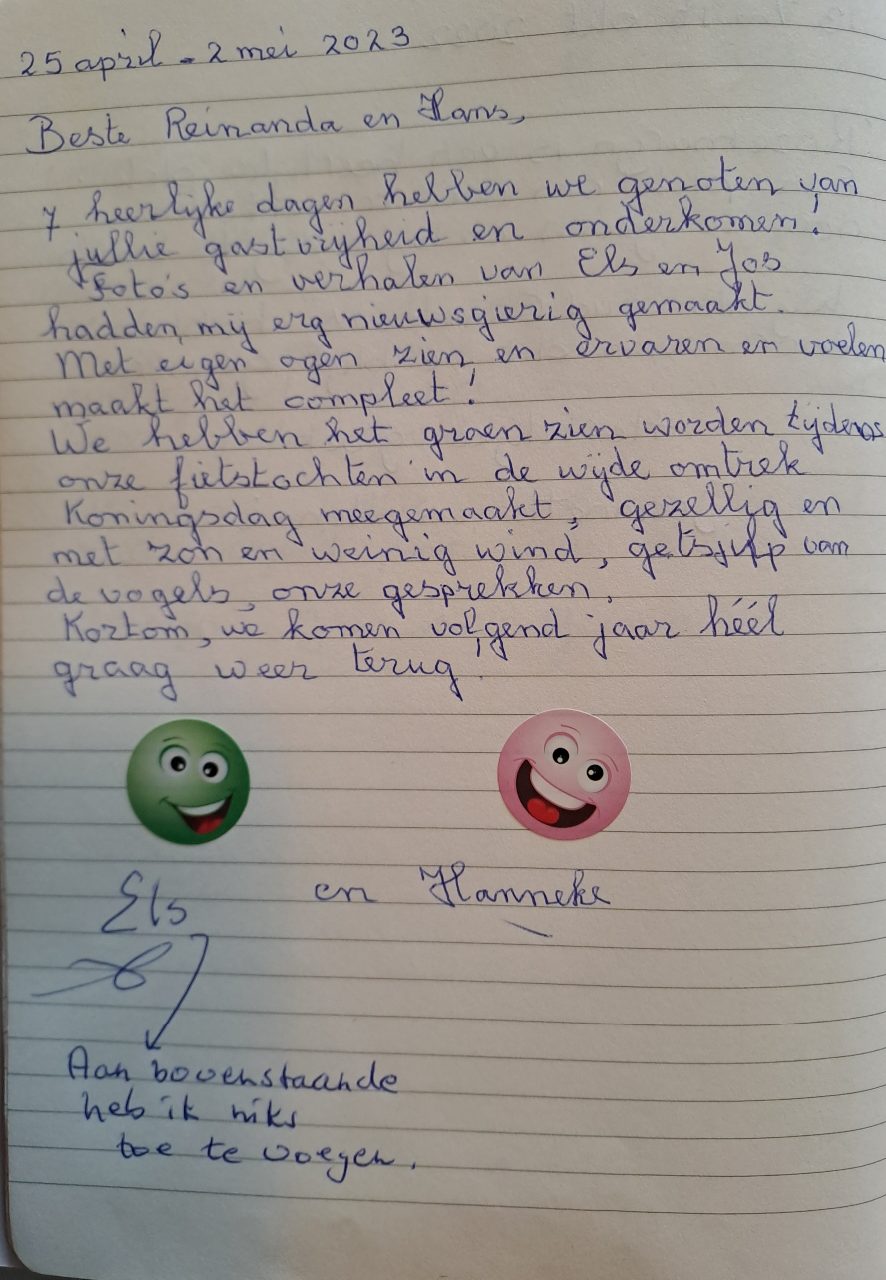 25 april - 2 mei 2023
Beste Reinanda en Hans,
7 heerlijke dagen hebben we genoten van
jullie gastvrijheid en onderkomen!
Foto's en verhalen van Els en Jos
hadden mij erg nieuwsgierig gemaakt.
Met eigen ogen zien en ervaren en voelen
maakt het compleet!
We hebben het groen zien worden tijdens
onze fietstochten in de wijde omtrek
Koningsdag meegemaakt, gezellig en
met zon en weinig wind, getsjilp van
de vogels, onze gesprekken.
Kortom, we komen volgend jaar héél
graag weer terug!
Els en Hanneke
Aan bovenstaande
heb ik niks
toe te voegen.